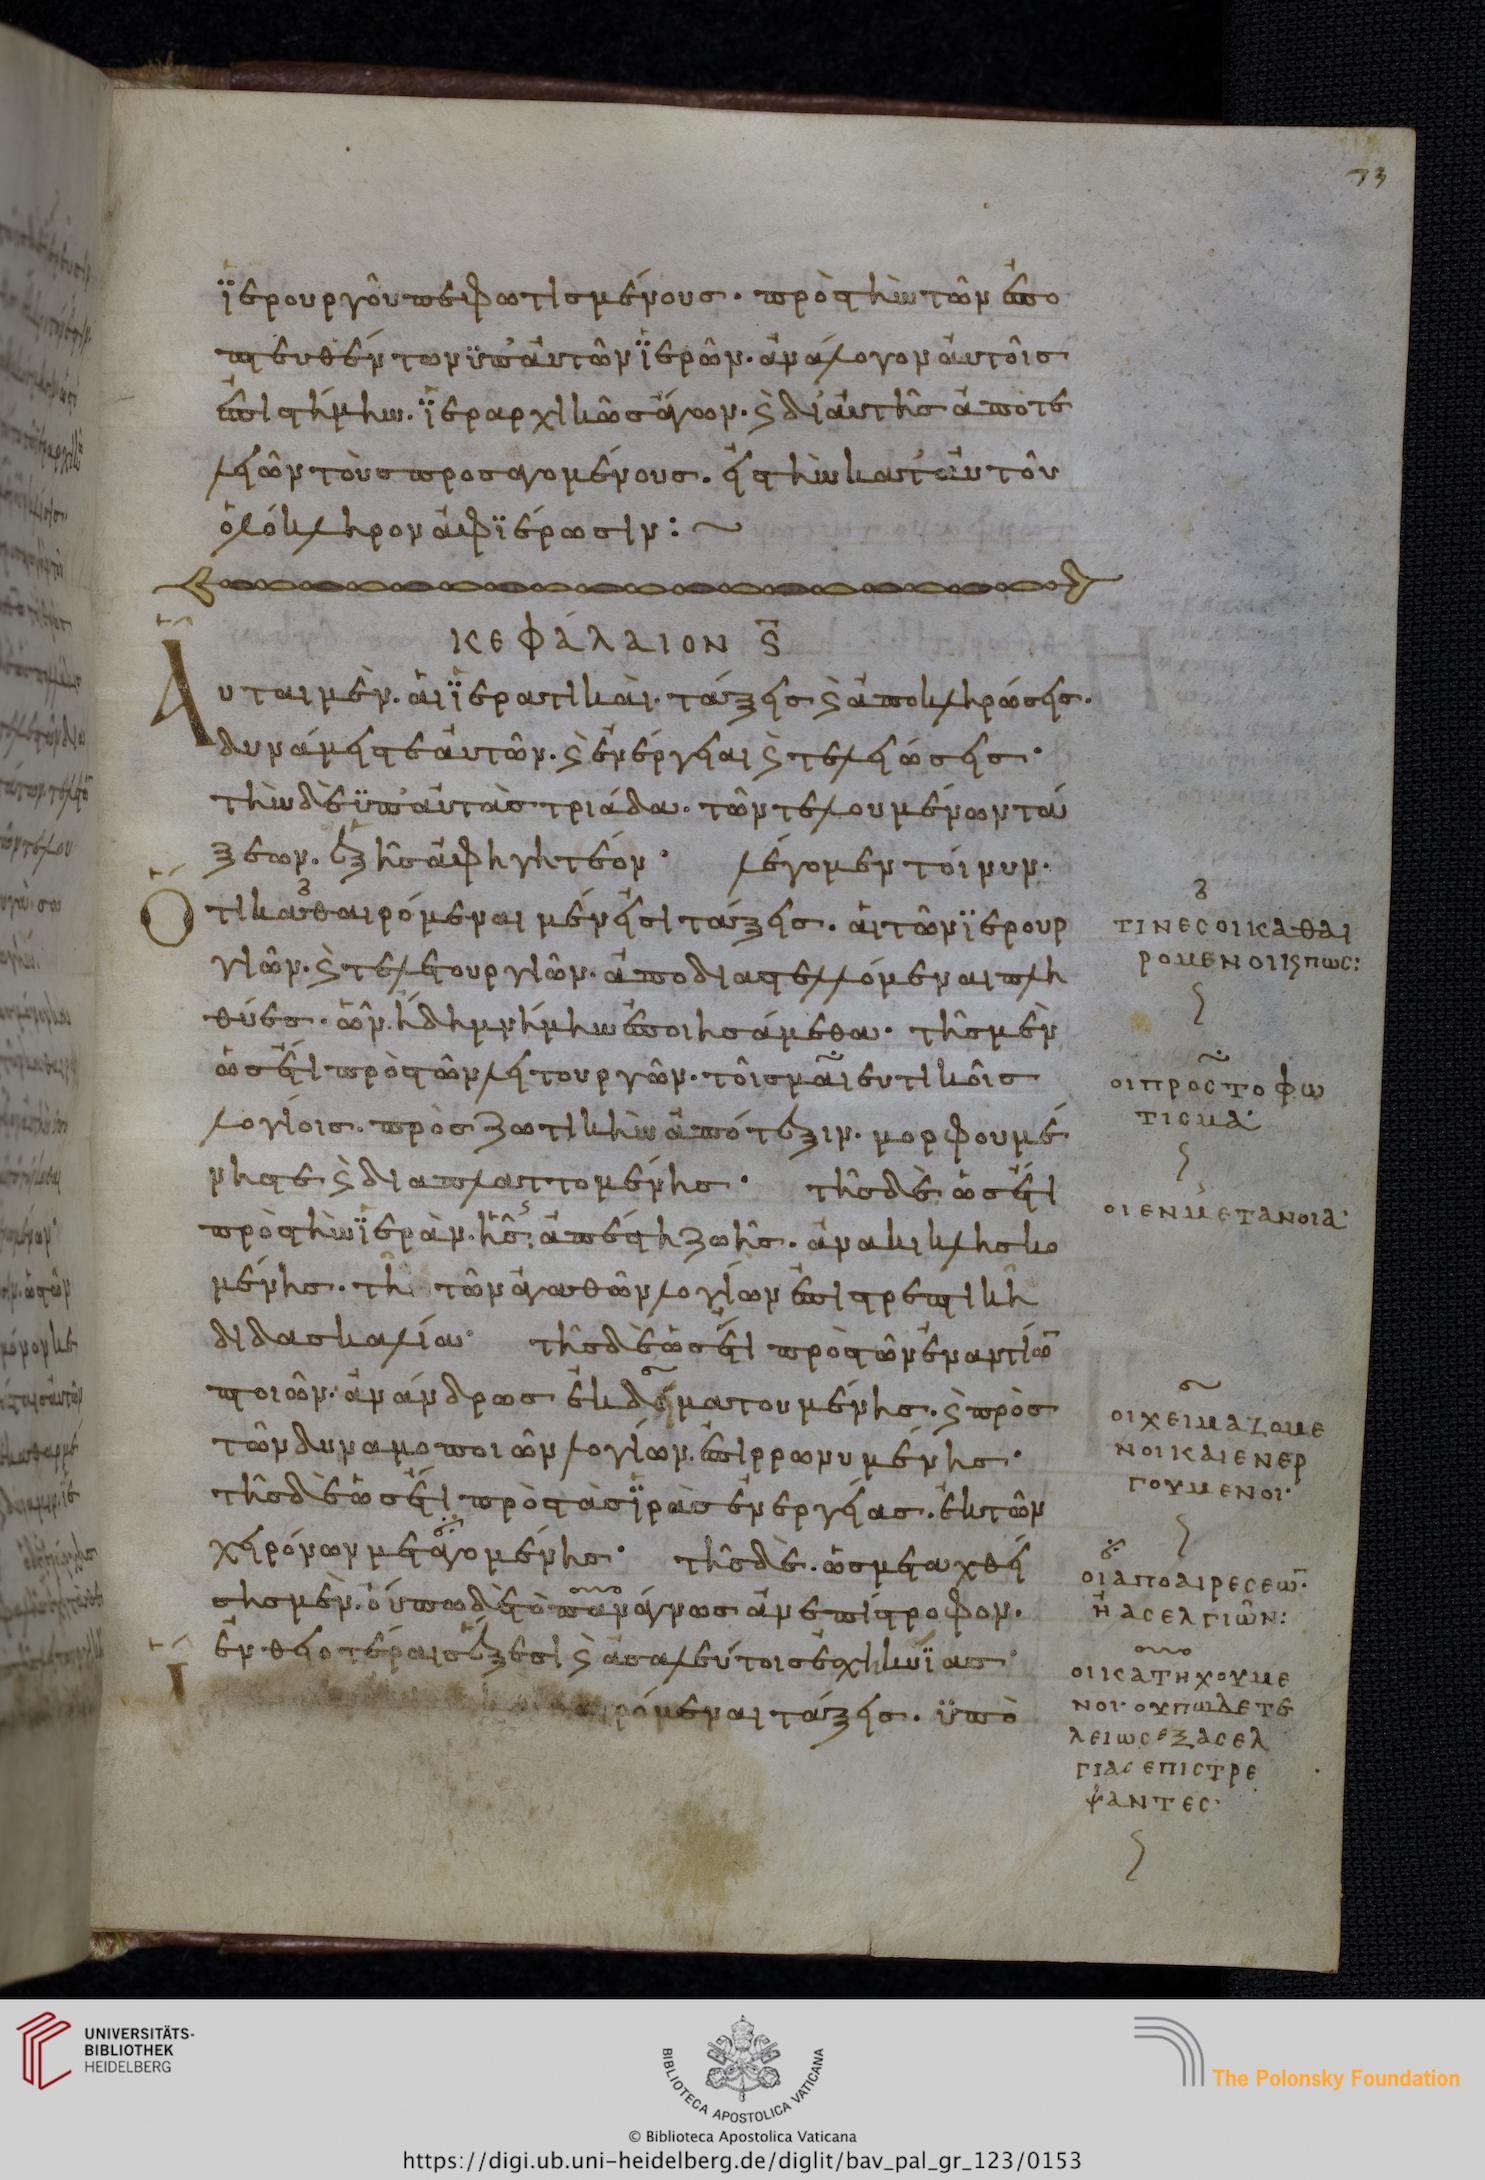 73
ϊερουργοῦ πεφωτισμένους· πρὸς τὴν τῶν ἐπο
πτευθέντων ϋπ' αὐτῶν ϊερῶν· ἀνάλογον αὐτοῖς
ἐπιστήμην· ϊεραρχικῶς ἄγων· ϛ δι' αὐτῆς ἀποτε
λειῶν τοὺς προσαγομένους· εἰς τὴν κατ' αὐτοὺ
ὁλόκληρον ἀφϊέρωσιν:~
ΚΕΦΆΛΑΙΟΝ Ϛ
Αὗται μὲν· αἱ ϊερατικαὶ· τάξεις ϛ ἀποκληρώσεις·
δυνάμεις τε αὐτῶν· ϛ ἐνέργειαι ϛ τελειώσεις·
τὴν δὲ ϋπ' αὐτὰς τριάδα· τῶν τελουμένων τά
ξεων· ἑξῆς ἀφηγητέον· λέγομεν τοίνυν·
Ὅτι καθαιρόμεναι μέν εἰσι τάξεις· αἱ τῶν ϊερουρ
γιῶν· ϛ τελετουργιῶν· ἀποδιαστελλόμεναι πλη
θύες· ὧν ἤδη μνήμην ἐποιησάμεθα· τῆς μὲν
ὡς ἔτι πρὸς τῶν λειτουργῶν· τοῖς μαιευτικοῖς
λογίοις· πρὸς ζωτικὴν ἀπότεξιν· μορφουμέ
νης τε ϛ διαπλαττομένης· τῆς δὲ ὡς ἔτι
πρὸς τὴν ϊερὰν· ἧς ἀπέστη ζωῆς· ἀνακικλησκο
μένης· τῆ τῶν ἀγαθῶν λογίων ἐπιστρεπτικῆ
διδασκαλία· τῆς δὲ ὡς ἔτι πρὸς τῶν ἐναντίω
ποιῶν· ἀνάνδρως ἐκδειματουμένης· ϛ πρὸς
τῶν δυναμοποιῶν λογίων· ἐπιρρωνυμένης·
τῆς δὲ ὡς ἔτι πρὸς τὰς ϊρὰς ἐνεργείας· ἐκ τῶν
χειρόνων μεταγομένης· τῆς δὲ· ὡς μεταχθεί
σης μὲν· οὔπω δὲ τὸ πανάγνως ἀνεπίστροφον·
ἐν θειοτέραις ἕξεσι ϛ ἀσαλεύτοις ἐσχηκυϊας·
ρόμεναι τάξεις· ϋπὸ
ΤΙΝΕϹ ΟΙ ΚΑΘΑΙ
ΡΟΜΕΝΟΙ Ϛ ΠΩϹ:
ΟΙ ΠΡΟϹ ΤΟ ΦΩ
ΤΙϹΜΑ·
ΟΙ ΕΝ ΜΕΤΑΝΟΙΑ·
ΟΙ ΧΕΙΜΑΖΟΜΕ
ΝΟΙ ΚΑΙ ΕΝΕΡ
ΓΟΥΜΕΝΟΙ·
ΟΙ ἈΠΟ ΑΙΡΕϹΕΩ·
Ἢ ΑϹΕΛΓΙῶΝ:
ΟΙ ΚΑΤΗΧΟΥΜΕ
ΝΟΙ· ΟΥΠΩ ΔΕ ΤΕ
ΛΕΙΩϹ ΕΞ ΑϹΕΛ
ΓΙΑϹ ΕΠΙϹΤΡΕ
ΨΑΝΤΕϹ·
UNIVERSITÄTS-
BIBLIOTHEK
HEIDELBERG
BIBLIOTECA APOSTOLICA VATICANA
The Polonsky Foundation
© Biblioteca Apostolica Vaticana
https://digi.ub.uni-heidelberg.de/diglit/bav_pal_gr_123/0153